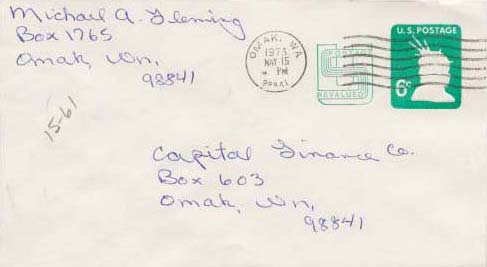 Michael A. Fleming
Box 1765
Omak, Wn.
98841
OMAK, WA
1973
MAY 15
PM
98841
U.S. POSTAGE
REVALUED
U.S. POSTAGE
6c
15-61
Capital Finance Co.
Box 603
Omak, Wn,
98841